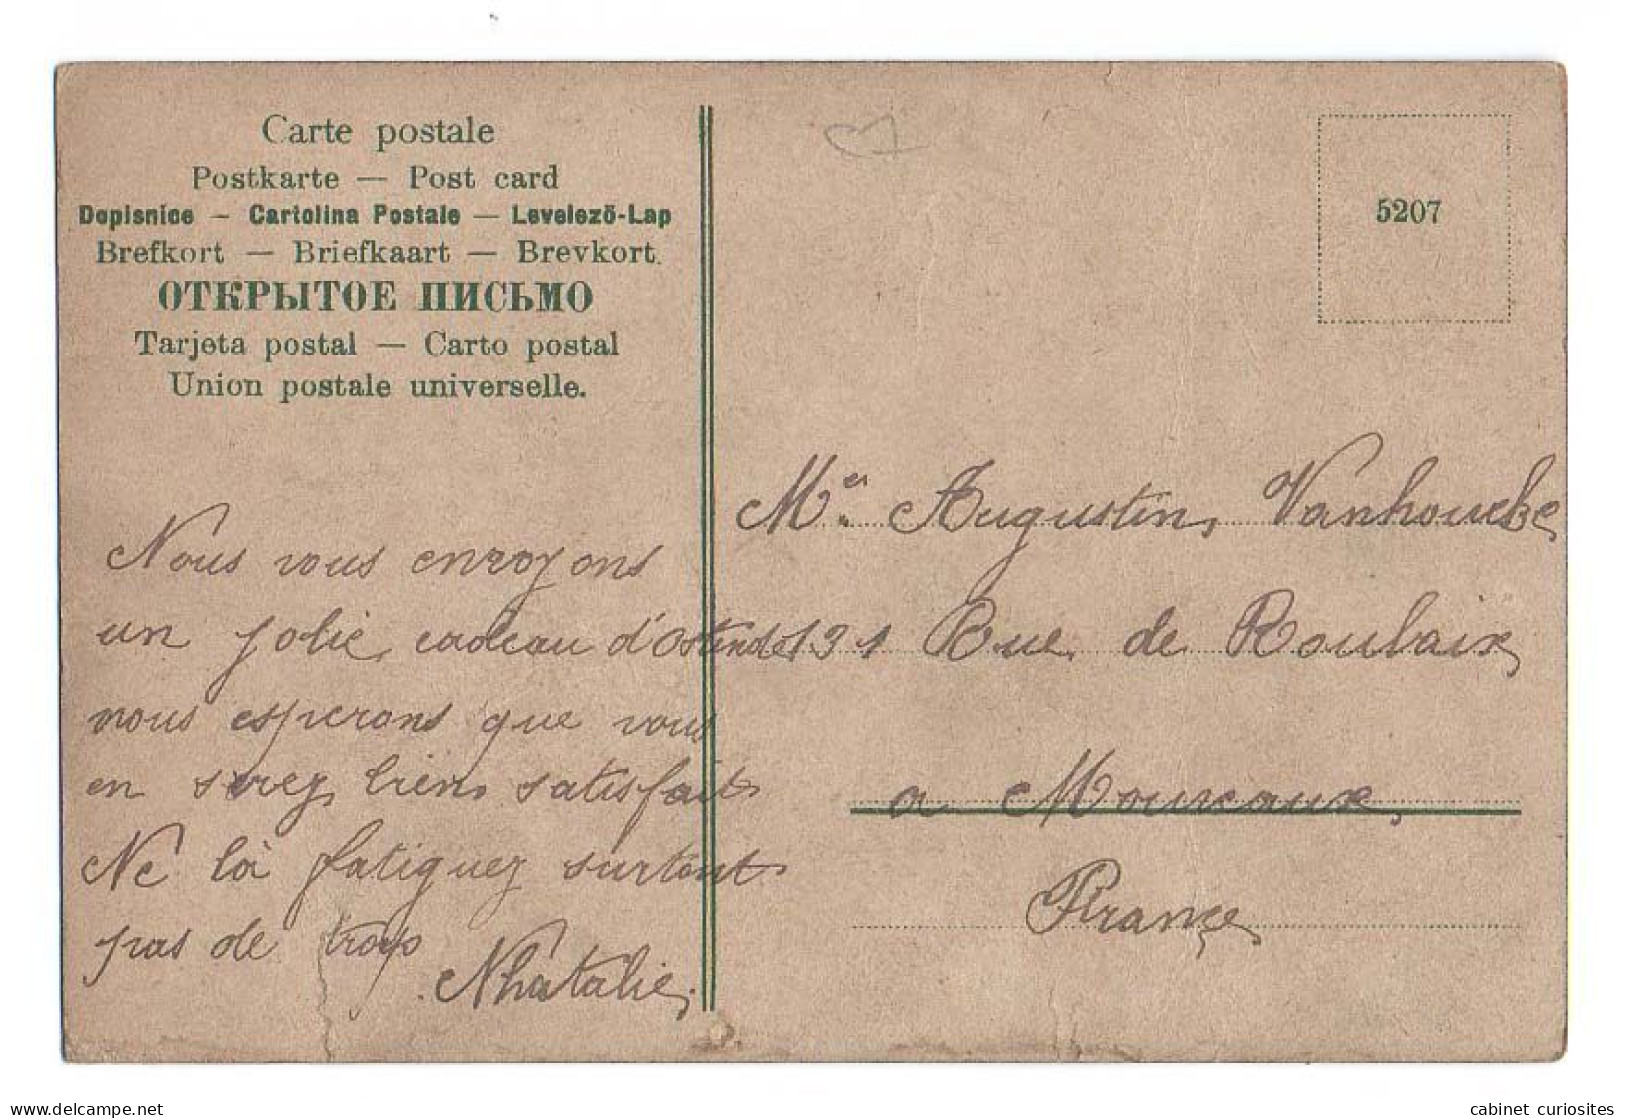 Carte postale
Postkarte — Post card
Dopisnice — Cartolina Postale — Levelező-Lap
Brefkort — Briefkaart — Brevkort.
ОТКРЫТОЕ ПИСЬМО
Tarjeta postal — Carto postal
Union postale universelle.
5207
Nous vous envoyons
un jolie cadeau d'Ostende
nous esperons que vous
en serez bien satisfait
Ne là fatiguez surtout
pas de trop
Nhatalie
Mer Augustin Vanhoucke
131 Rue de Roubaix
a Mouveaux
France
delcampe.net
cabinet_curiosites